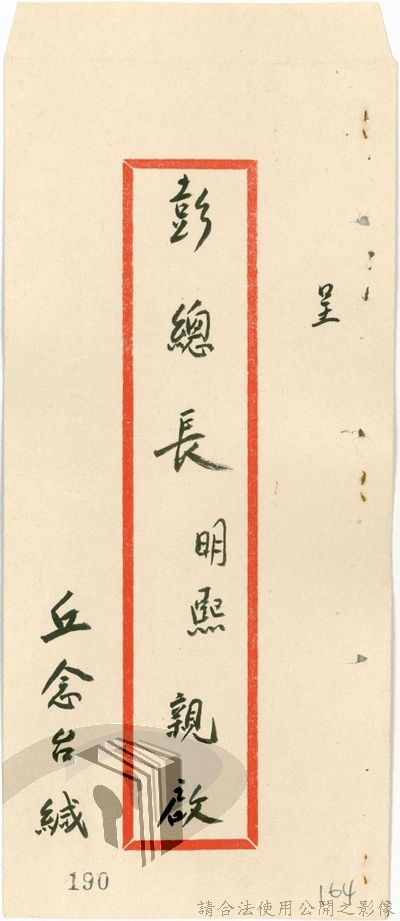 呈
彭總長明熙親啟
丘念台緘
190
164
請合法使用公開之影像